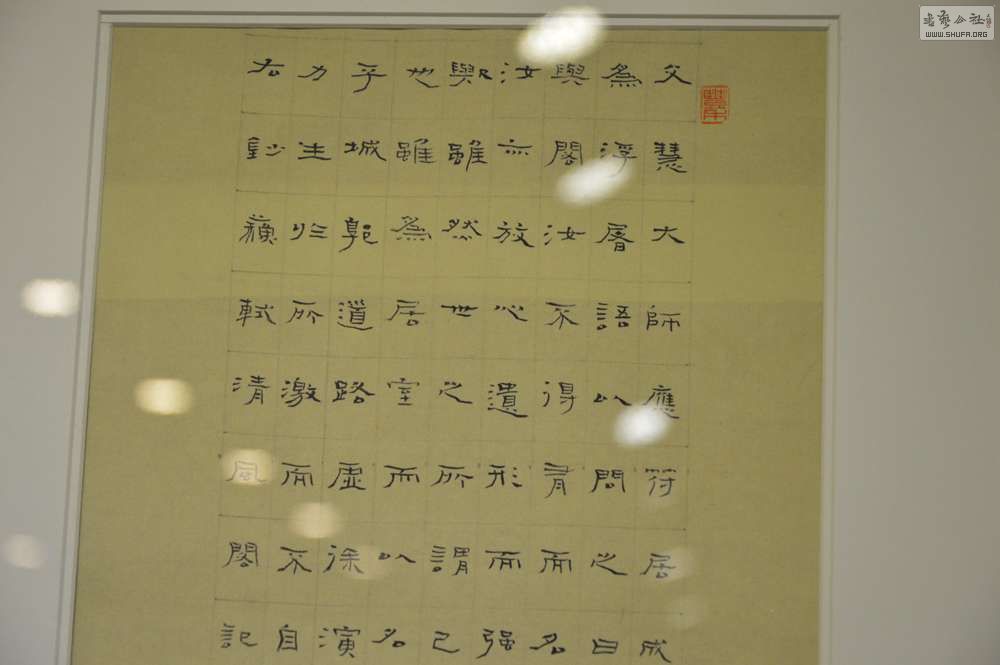 文慧大師應符居成
為浮屠語以問之曰
與閣汝不得有而名
汝亦放心遺形而强
歟雖然世之所謂己
也雖為居室而以名
乎城郭道路虛徐演
力生於所激而不自
右鈔蘇軾清風閣記
书艺公社
WWW.SHUFA.ORG